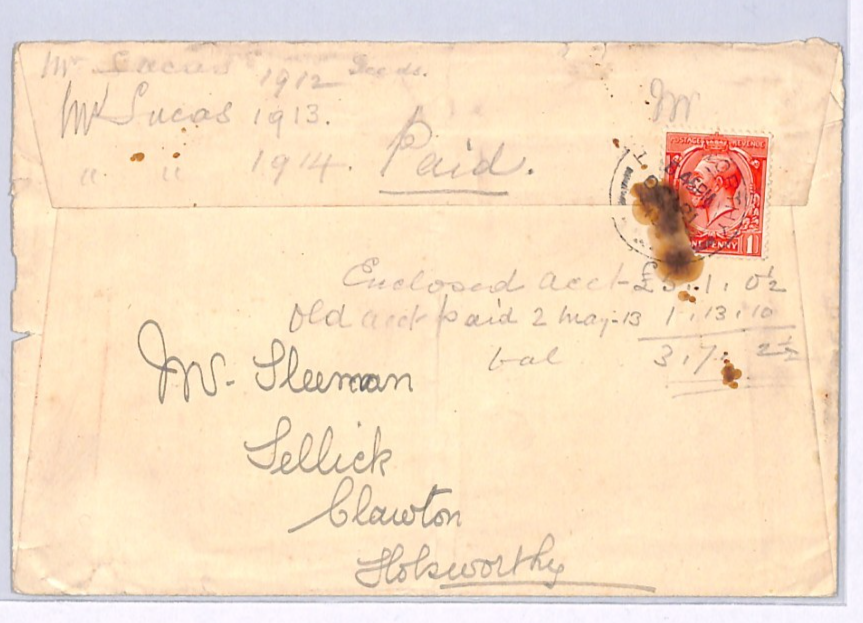 Mr Lucas 1912 Seeds.
Mr Lucas 1913.
" " 1914. Paid.
Mr
POSTAGE REVENUE
ONE PENNY 1
Enclosed acct £5.1.0½
Old acct paid 2 May-13 1.13.10
bal 3.7.2½
Mr. Sleeman
Sellick
Clawton
Holsworthy